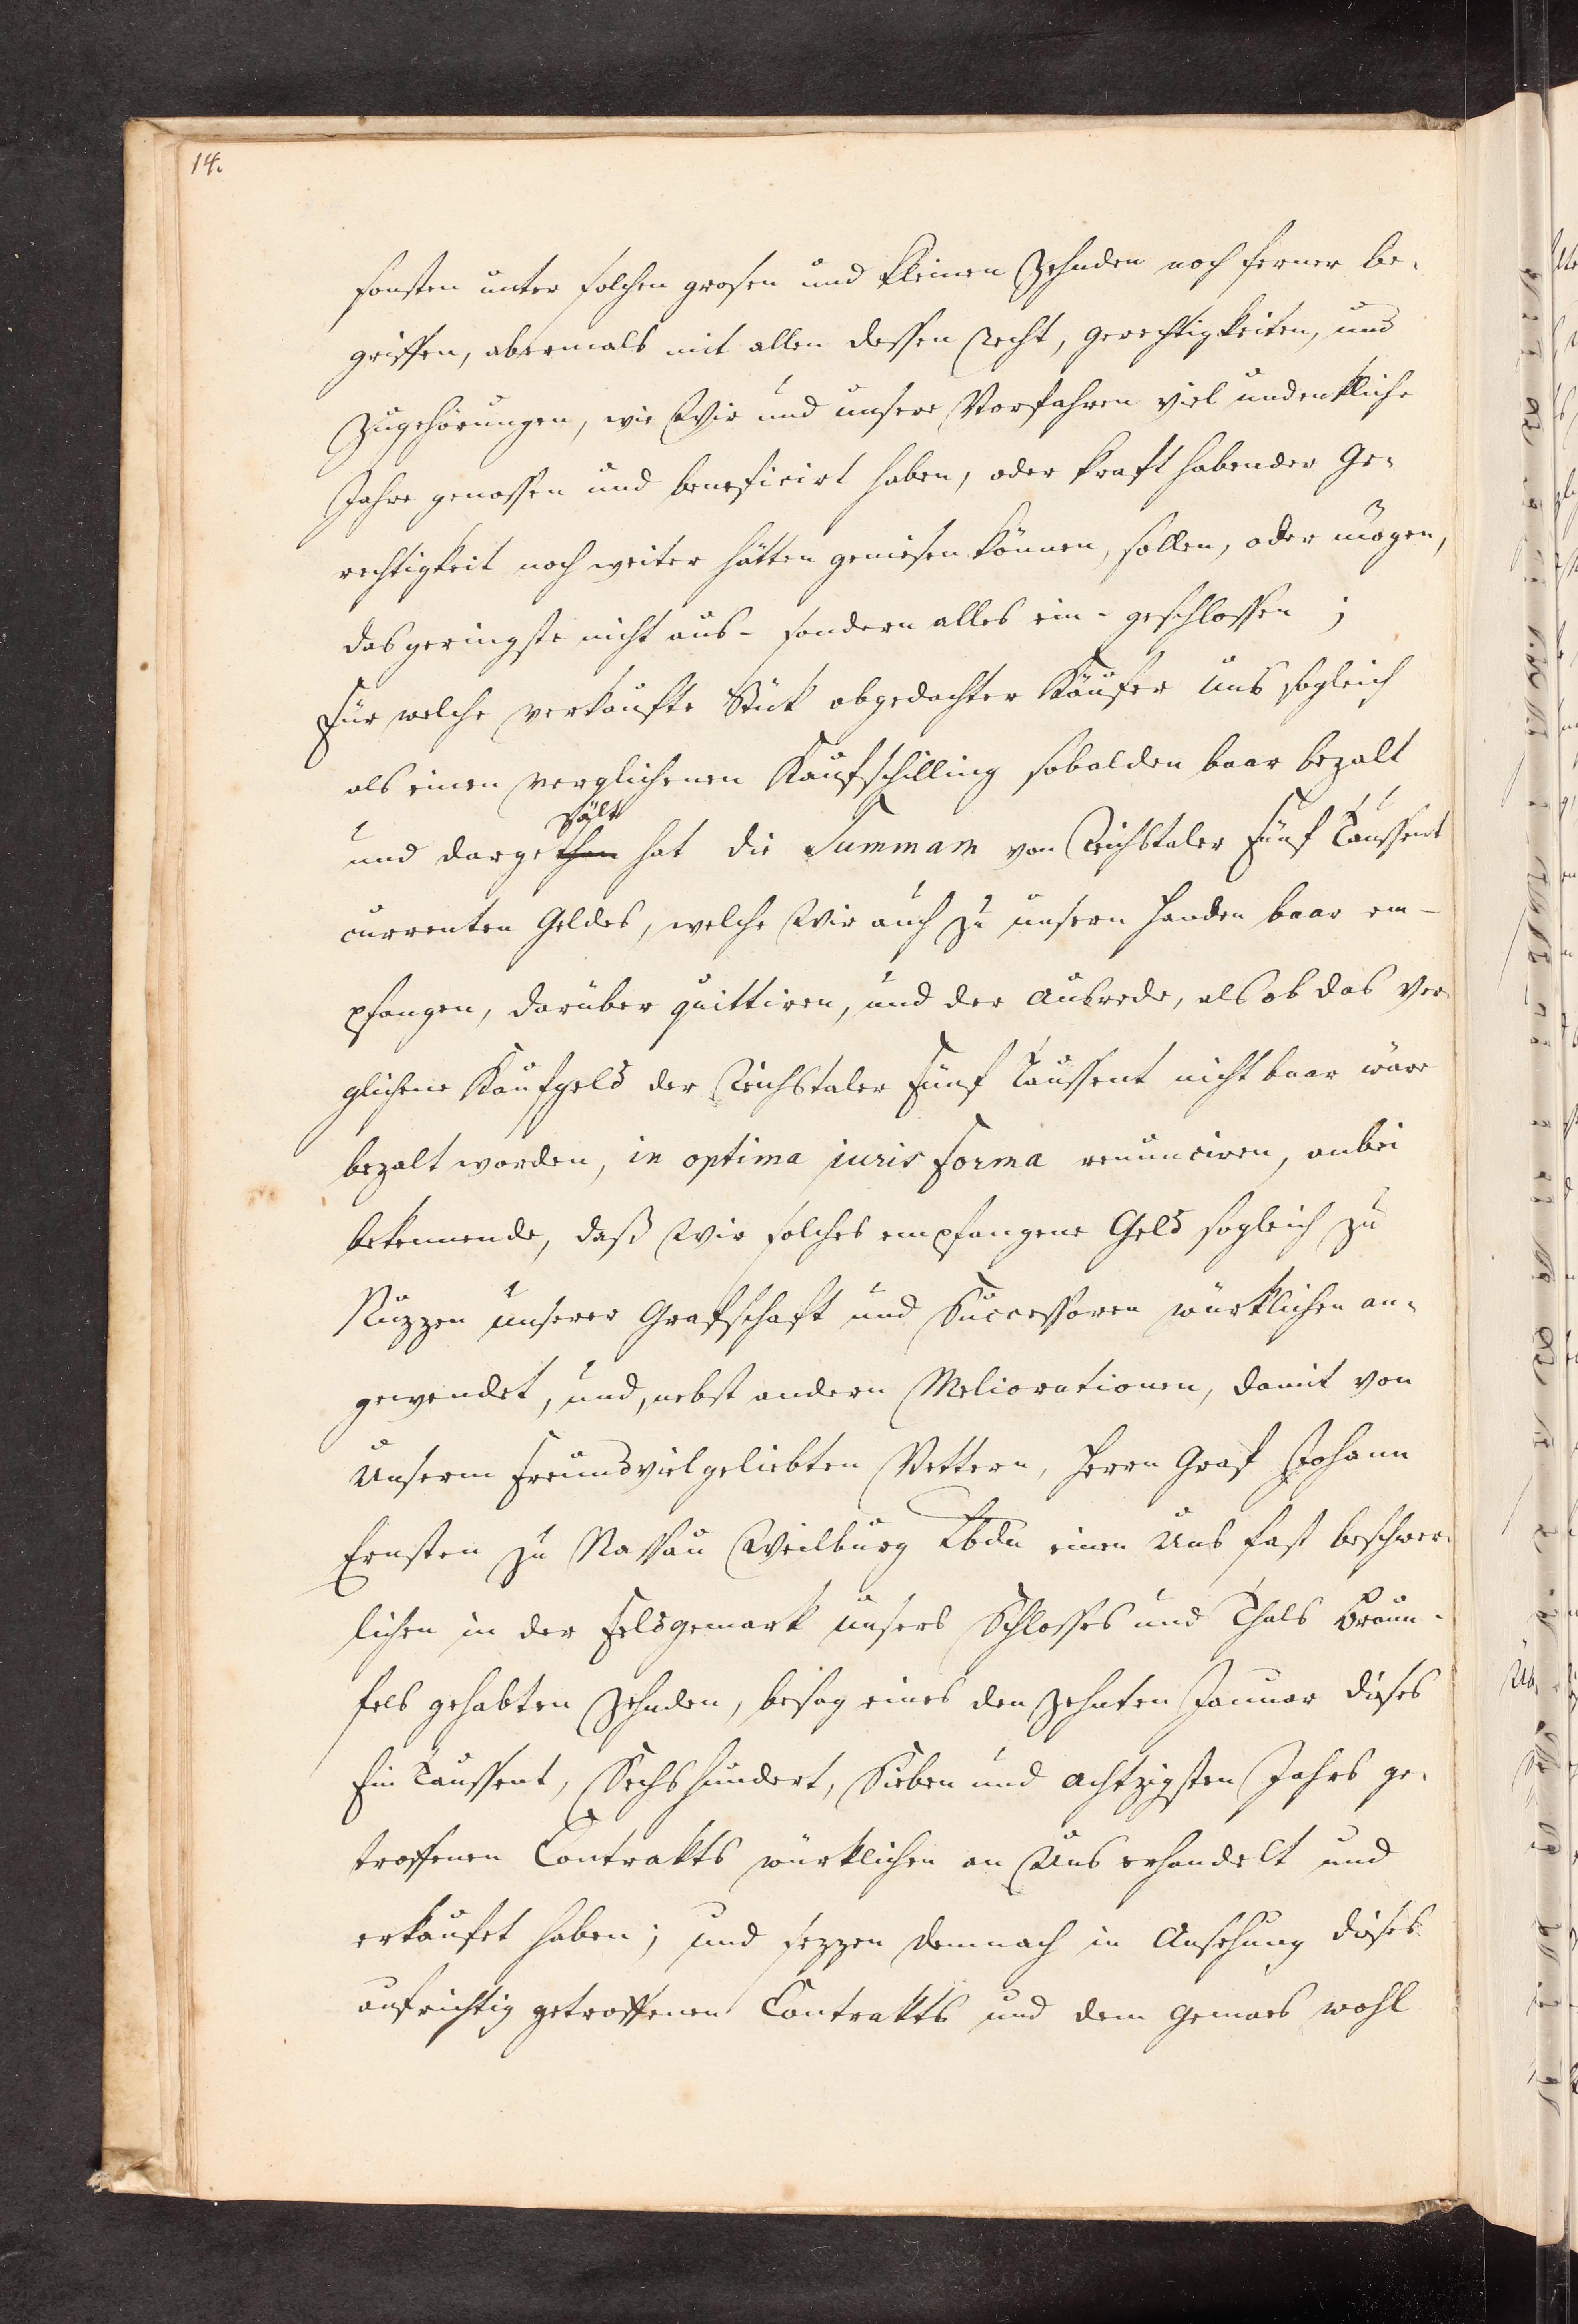 14.
sonsten unter solchen grosen und kleinen Zehnden noch ferner be-
griffen, abermals mit allen dessen Recht, Gerechtigkeiten, und
Zugehörungen, wie Wir und unsere Vorfahren viel undenkliche
Jahre genossen und beneficirt haben, oder kraft habender Ge-
rechtigkeit noch weiter hätten geniesen können, sollen, oder mögen,
das geringste nicht aus- sondern alles ein-geschlossen;
Für welche verkaufte Stük obgedachter Käufer Uns sogleich
als einen verglichenen Kaufschilling sobalden baar bezalt
zält
und dargethan hat die Summam von Reichstaler Fünf Taussent
currenten Geldes, welche Wir auch zu unsern Handen baar em-
pfangen, darüber quittiren, und der Ausrede, als ob das ver-
glichene Kaufgeld der Reichstaler Fünf Taussent nicht baar wäre
bezalt worden, in optima juris forma renunciren, anbei
bekennende, daß Wir solches empfangene Geld sogleich zu
Nuzzen unserer Grafschaft und Successoren würklichen an-
gewendet, und, nebst andern Meliorationen, damit von
Unserm Freundvielgeliebten Vettern, Herrn Graf Johann
Ernsten zu Nassau Weilburg Lbdn einen Uns fast beschwer-
lichen in der Feldgemark unsers Schlosses und Thals Braun-
fels gehabten Zehnden, besag eines den zehnten Januar dieses
Ein Taussent, Sechshundert, Sieben und achtzigsten Jahrs ge-
troffenen Contrakts würklichen an Uns erhandelt und
erkaufet haben; und sezzen demnach in Ansehung dieses
aufrichtig getroffenen Contrakts und dem gemaes wohl